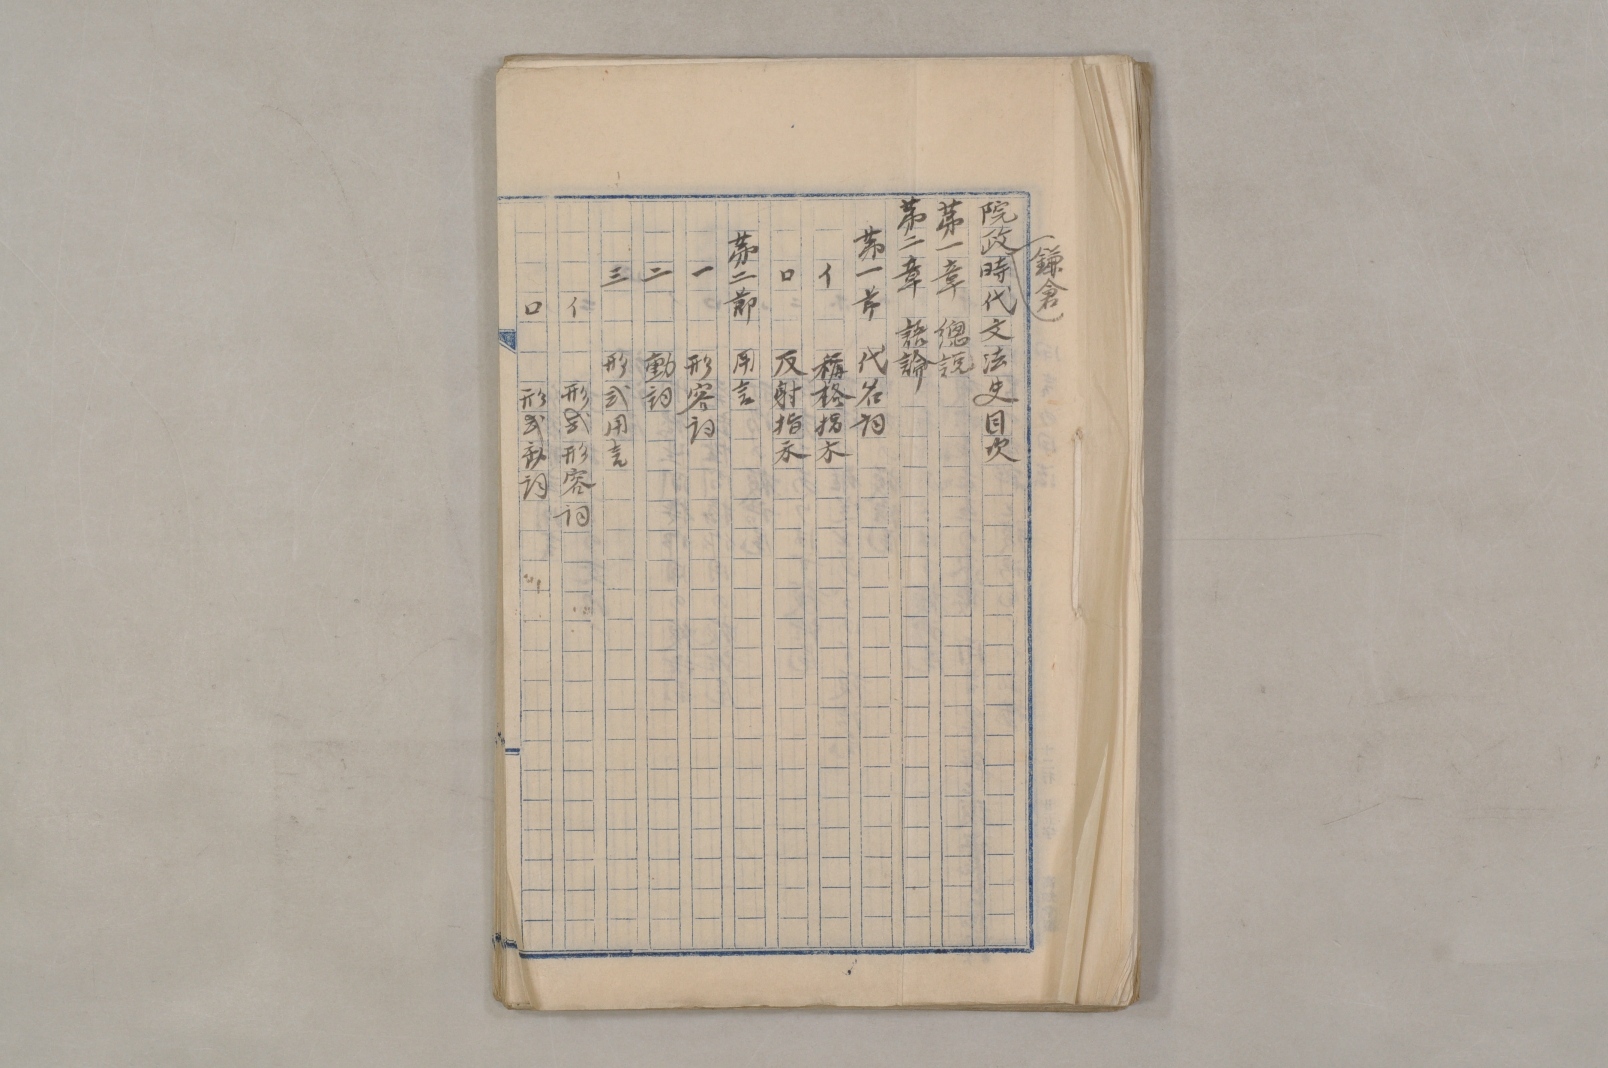 院政時代文法史目次
(鎌倉)
第一章 總説
第二章 語論
第一節 代名詞
イ 稱格指示
ロ 反射指示
第二節 用言
一 形容詞
二 動詞
三 形式用言
イ 形式形容詞
ロ 形式動詞